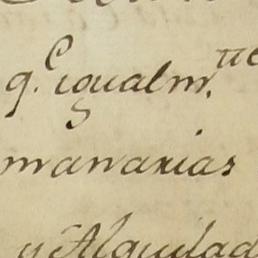 q.e igualm.te
mananias
y Alquilad